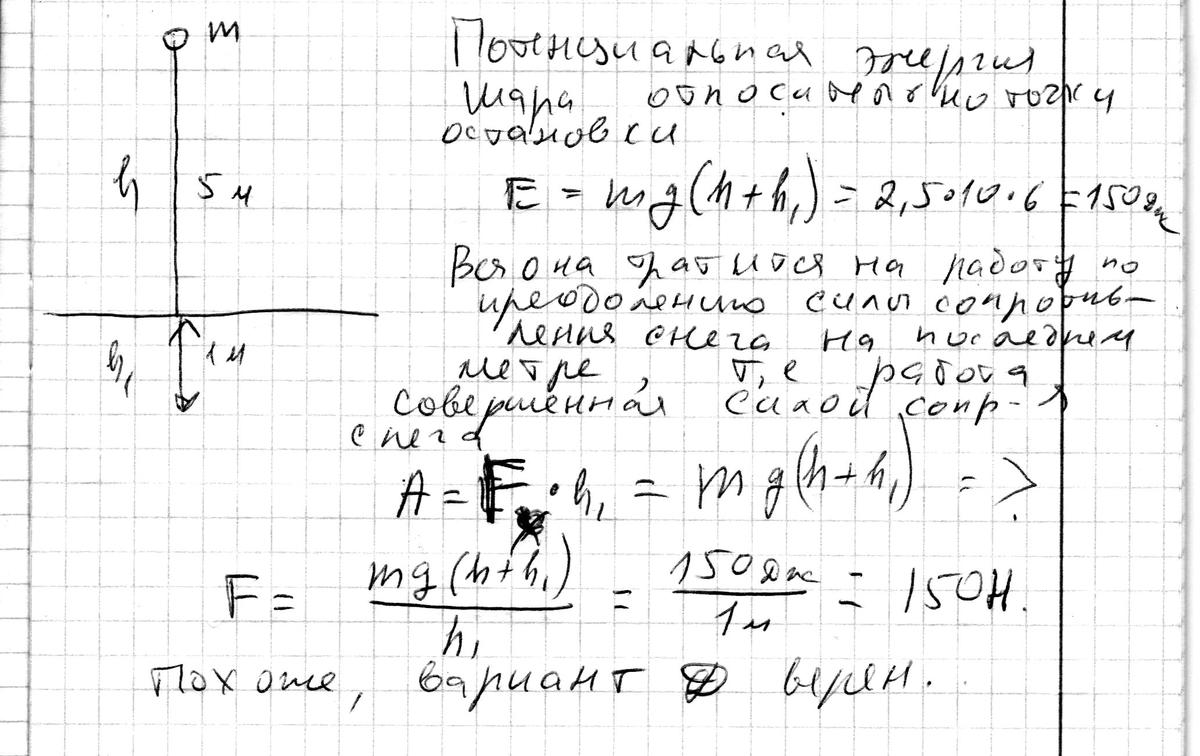 m
Потенциальная энергия
шара относительно точки
остановки
h 5 м
E = mg(h+h₁) = 2,5·10·6 = 150 Дж
Вся она тратится на работу по
преодолению силы сопротив-
ления снега на последнем
h₁ 1 м
метре, т,е работа,
совершенная силой сопр-
снега
A = F · h₁ = mg(h+h₁) =>
F = mg(h+h₁) / h₁ = 150 Дж / 1 м = 150 Н.
Похоже, вариант верен.